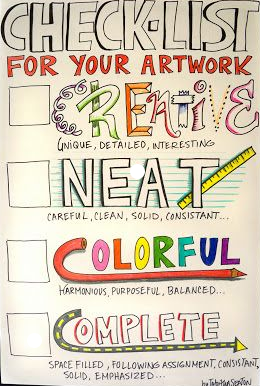 CHECK-LIST
FOR YOUR ARTWORK
CREATIVE
UNIQUE, DETAILED, INTERESTING
NEAT
CAREFUL, CLEAN, SOLID, CONSISTANT...
COLORFUL
HARMONIOUS, PURPOSEFUL, BALANCED...
COMPLETE
SPACE FILLED, FOLLOWING ASSIGNMENT, CONSISTANT,
SOLID, EMPHASIZED...
by